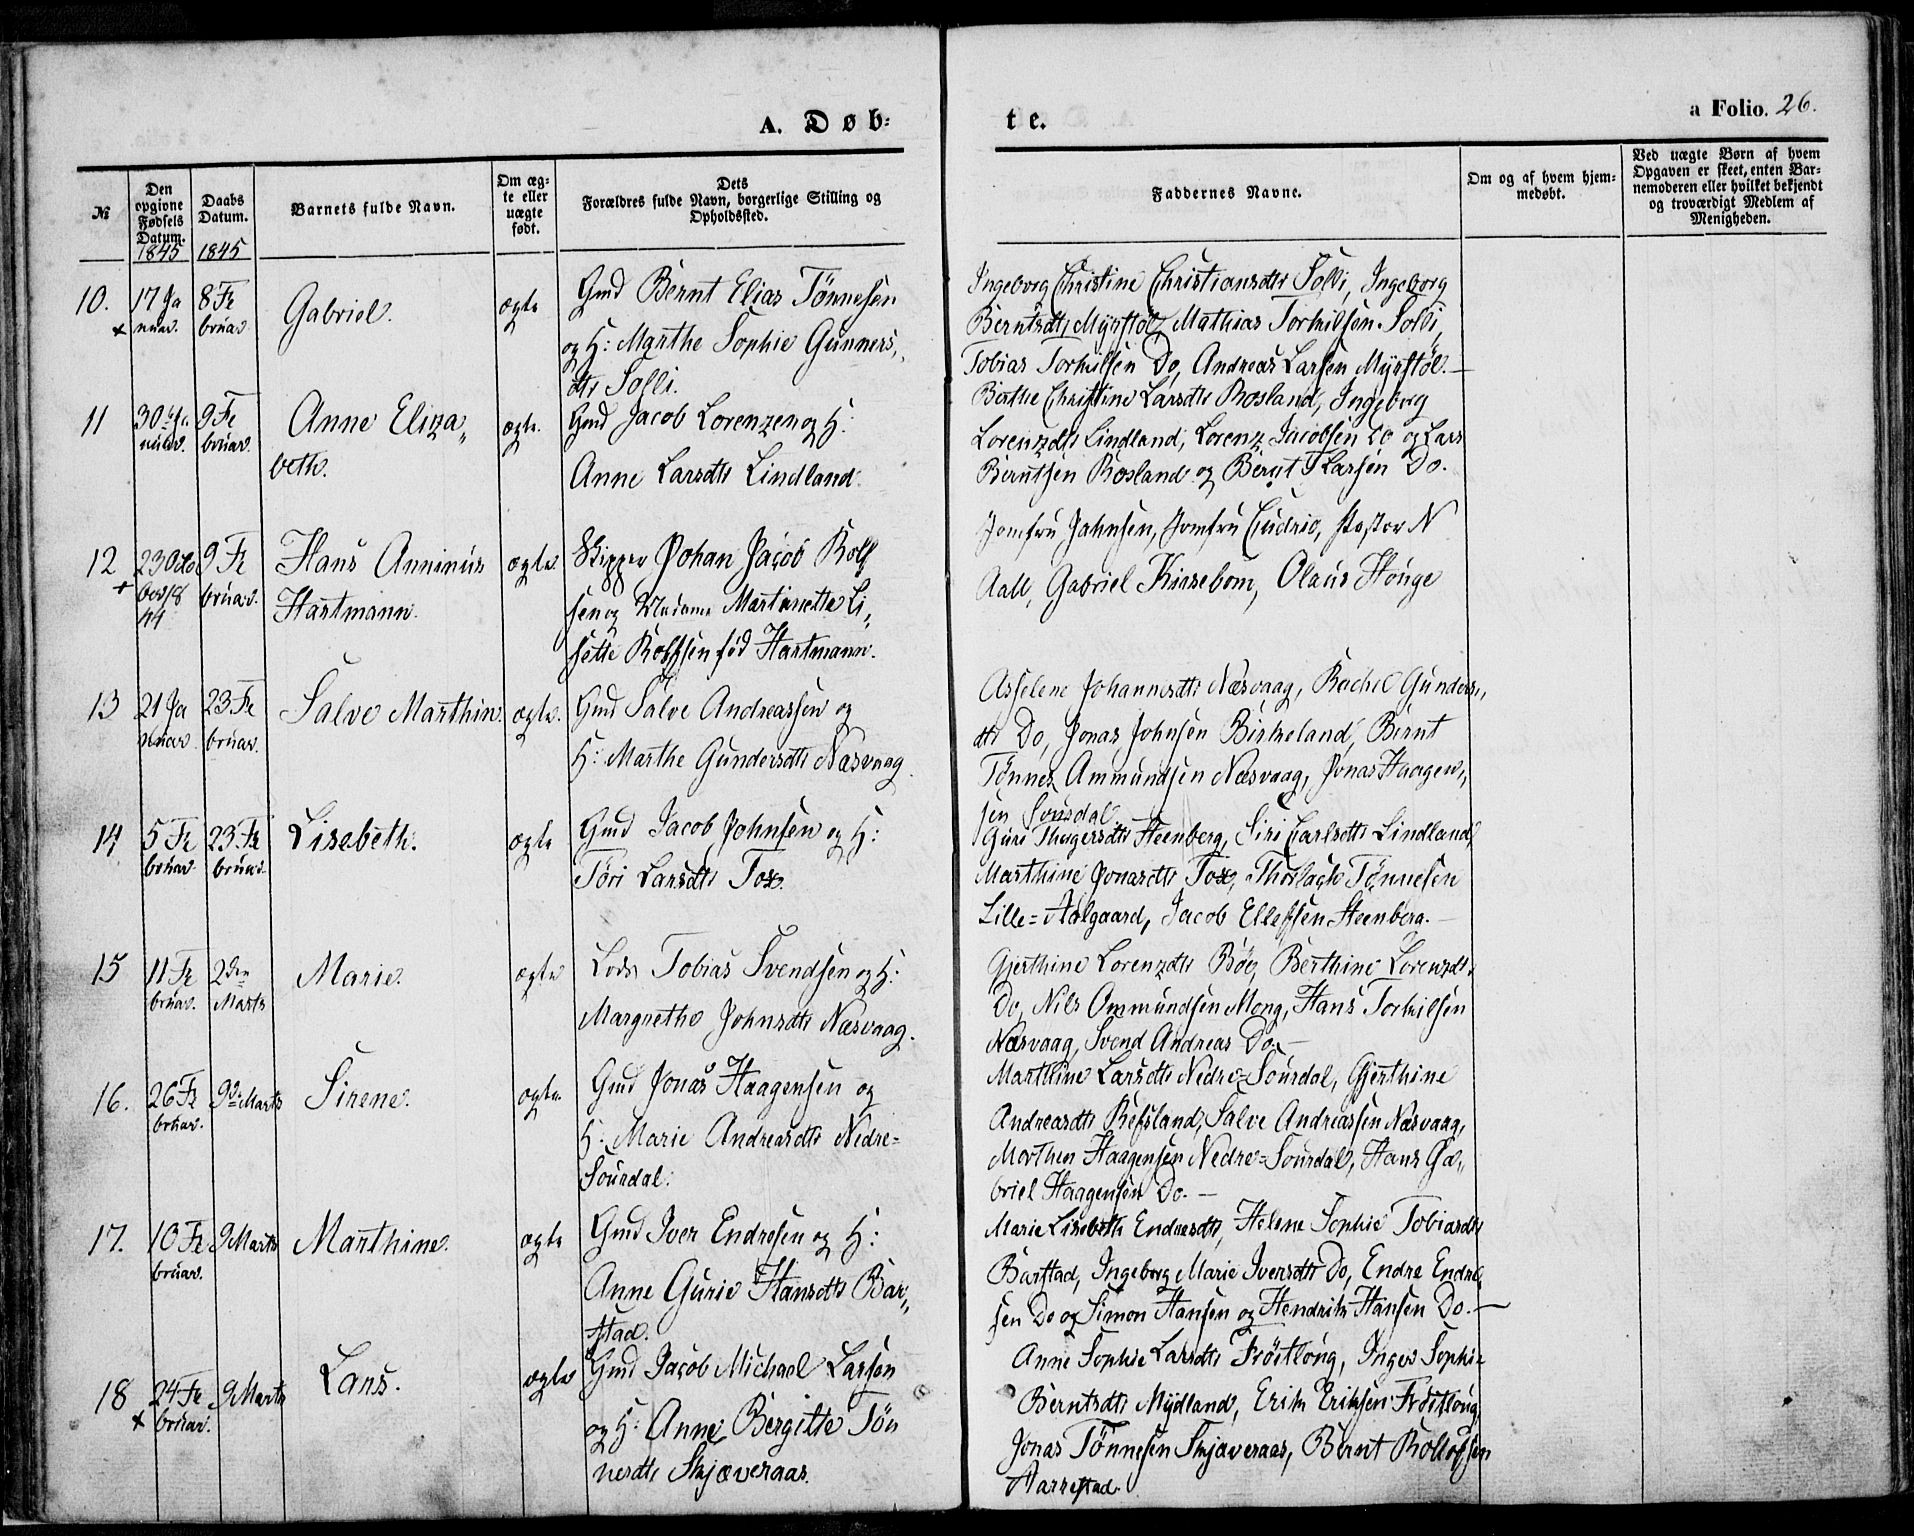 A. Døb-
te.
a Folio. 26.
№
Den opgivne Fødsels Datum.
1845
Daabs Datum.
1845
Barnets fulde Navn.
Om ægte eller uægte født.
Dets
Forældres fulde Navn, borgerlige Stilling og
Opholdssted.
Faddernes Navne.
Om og af hvem hjem-
medøbt.
Ved uægte Børn af hvem
Opgaven er skeet, enten Bar-
nemoderen eller hvilket bekjendt
og troværdigt Medlem af
Menigheden.
10. 17 Ja 8 Fe Gabriel. ægte Gmd Bernt Elias Tønnesen
+ nuar. bruar og H: Marthe Sophie Gunners„
dtr Solli.
Ingeborg Christine Christiansdtr Solli, Ingeborg
Berntsdtr Myrstøl, Mathias Torkilsen Solli,
Tobias Torkilsen Do, Andreas Larsen Myrstøl.—
11 30 Ja 9 Fe Anne Eliza„ ægte. Gmd Jacob Lorenzen og H:
nuar. bruar. beth. Anne Larsdtr Lindland.
Berthe Christine Larsdtr Rosland, Ingeborg
Lorenzdtr Lindland, Lorenz Jacobsen Do og Lars
Berntsen Rosland og Bernt Larsen Do.
12 23 Octo 9 Fe Hans Anninus ægte Skipper Johan Jacob Rolf
+ ber 18 bruar. Hartmann. sen og Madame Martinette Li„
44 sette Rolfsen fød Hartmann.
Jomfru Jahnsen, Jomfru , Pastor N
Aall, Gabriel Kirsebom, Olaus Houge
13 21 Ja 23 Fe Salve Marthin. ægte. Gmd Salve Andreassen og
nuar bruar. H: Marthe Gundersdtr Næsvaag.
Asselene Johannesdtr Næsvaag, Rachel Gunders„
dtr Do, Jonas Johnsen Birkeland, Bernt
Tønnes Ammundsen Næsvaag, Jonas Haagen„
sen Sousdal.
14 5 Fe 23 Fe Lisebeth. ægte Gmd Jacob Johnsen og H:
bruar bruar. Tóri Larsdtr Tox.
Guri Thogersdtr Steenberg, Siri Carlsdtr Lindland,
Marthine Jonasdtr Tox, Thorlach Tønnesen
Lille=Aalgaard, Jacob Ellefsen Steenberg.—
15 11 Fe 2den Marie. ægte Lods Tobias Svendsen og H:
bruar. Marts Margrethe Johnsdtr Næsvaag.
Gjerthine Lorenzdtr Bøe, Berthine Lorenzdtr
Do, Nils Ommundsen Mong, Hans Torkilsen
Næsvaag, Svend Andreas Do.—
16. 26 Fe 9de Marts Sirene. ægte. Gmd Jonas Haagensen og
bruar. H: Marie Andreasdtr Nedre=
Sousdal.
Marthine Larsdtr Nedre=Sousdal, Gjerthine
Andreasdtr Refsland, Salve Andreassen Næsvaag,
Morthen Haagensen Nedre=Sousdal, Hans Ga„
briel Haagensen Do.—
17. 10 Fe 9 Marts Marthine. ægte Gmd Iver Endresen og H:
bruar. Anne Gurie Hansdtr Bar„
stad.
Marie Lisebeth Endresdtr, Helene Sophie Tobiasdtr
Barstad, Ingeborg Marie Iversdtr Do, Endre Endre
sen Do og Simon Hansen og Hendrik Hansen Do.—
18 24 Fe 9 Marts Lars. ægte Gmd Jacob Michael Larsen
+ bruar. og H: Anne Bergitte Tøn
nesdtr Skjæveraas.
Anne Sophie Larsdtr Frøitlong, Inger Sophie
Berntsdtr Mydland, Erik Eriksen Frøitlong,
Jonas Tønnesen Skjæveraas, Bernt Rollofsen
Aarrestad.